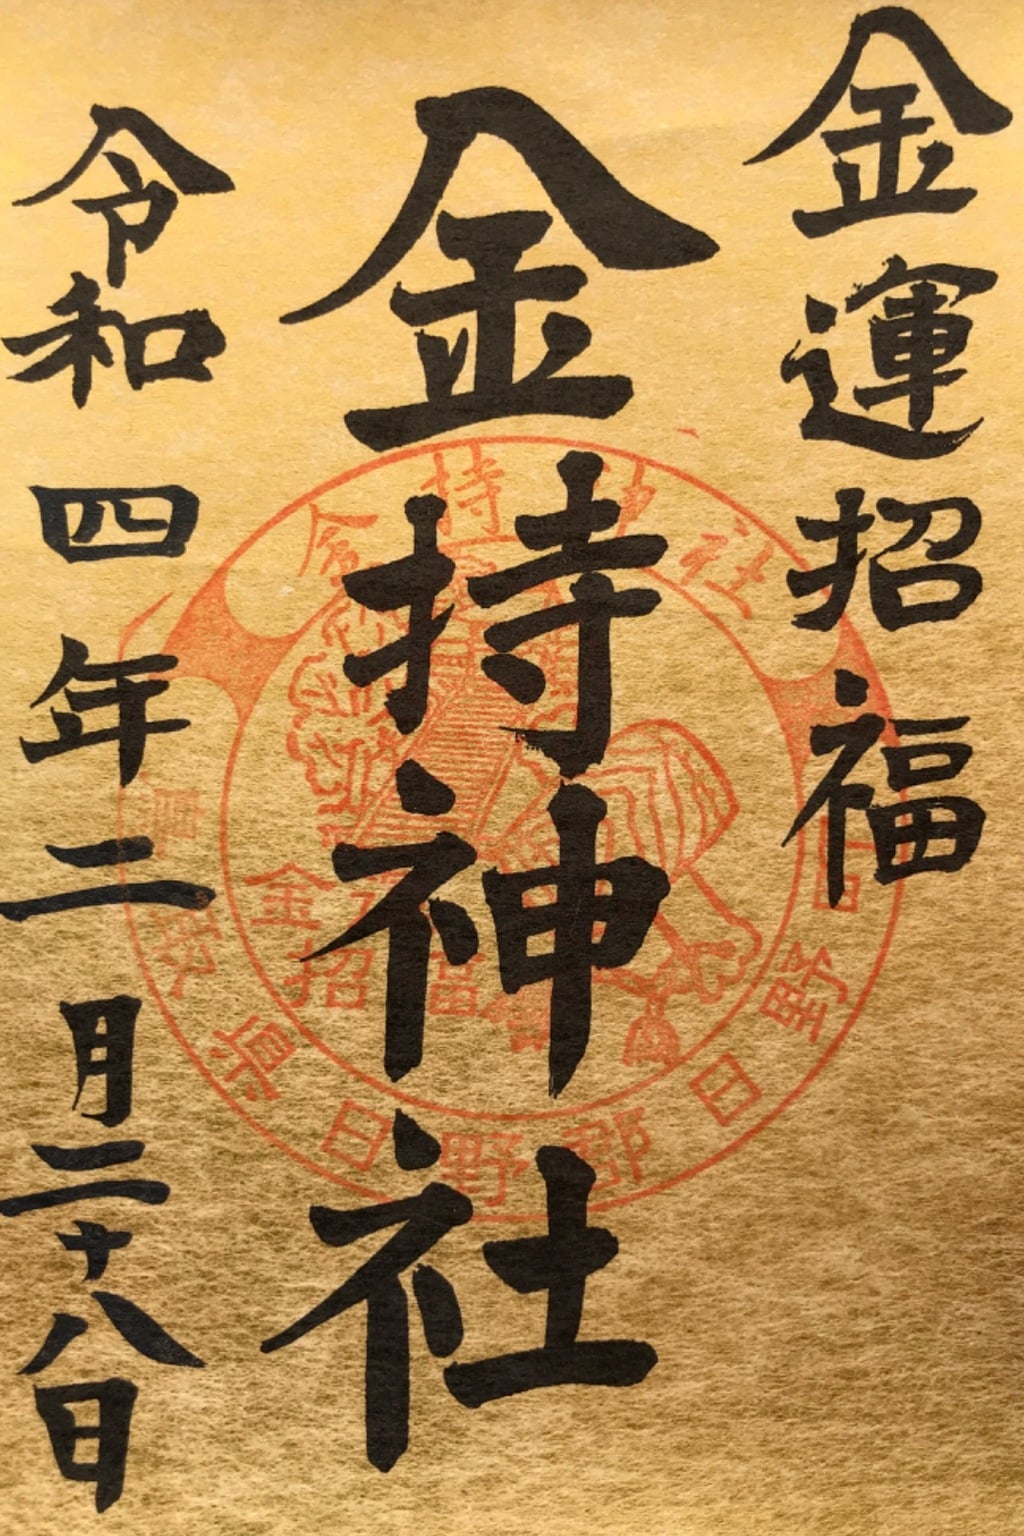 金運招福
金持神社
令和四年二月二十八日
金持神社
鳥取県日野郡日野